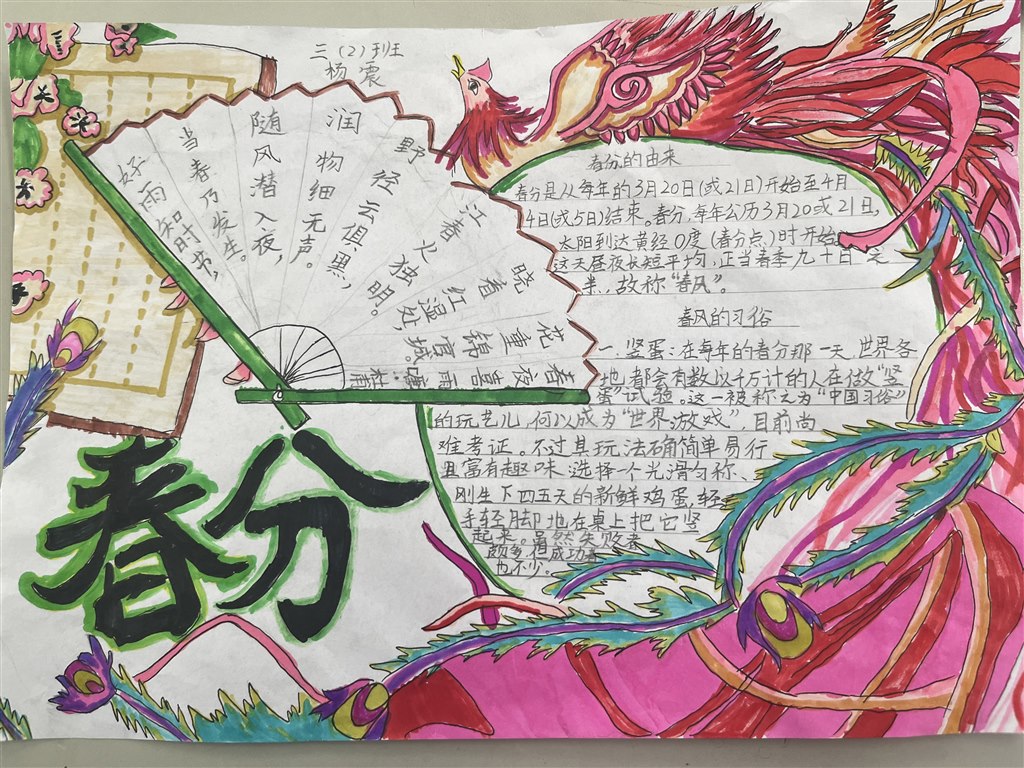 三(2)班
杨震
好雨知时节,
当春乃发生。
随风潜入夜,
润物细无声。
野径云俱黑,
江春火独明。
晓看红湿处,
花重锦官城。
春夜喜雨
杜甫
春分的由来
春分是从每年的3月20日(或21日)开始至4月
4日(或5日)结束。春分,每年公历3月20或21日,
太阳到达黄经0度(春分点)时开始
这天昼夜长短平均,正当春季九十日之
半,故称“春风”。
春风的习俗
一.竖蛋:在每年的春分那一天,世界各
地,都会有数以千万计的人在做“竖
蛋”试验。这一被称之为“中国习俗”
的玩艺儿,何以成为“世界游戏”,目前尚
难考证。不过其玩法确简单易行
且富有趣味,选择一个光滑匀称、
刚生下四五天的新鲜鸡蛋,轻
手轻脚地在桌上把它竖
起来。虽然失败者
颇多,但成功者
也不少。
春分